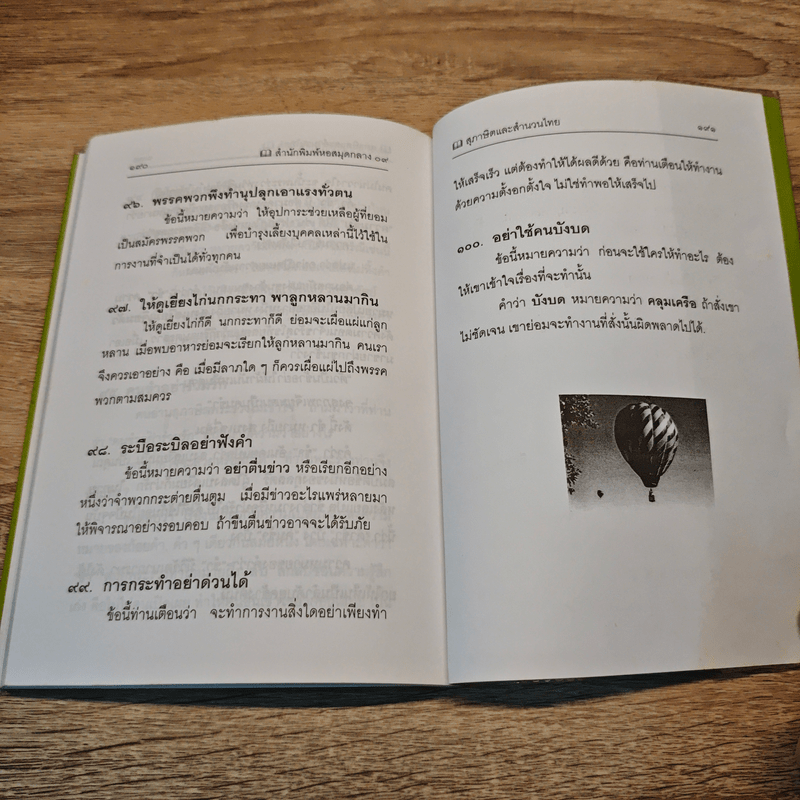 ๑๙๐
สำนักพิมพ์หอสมุดกลาง ๐๙
๙๖. พรรคพวกพึงทำนุปลุกเอาแรงทั่วตน
ข้อนี้หมายความว่า ให้อุปการะช่วยเหลือผู้ที่ยอม
เป็นสมัครพรรคพวก เพื่อบำรุงเลี้ยงบุคคลเหล่านี้ไว้ใช้ใน
การงานที่จำเป็นได้ทั่วทุกคน
๙๗. ให้ดูเยี่ยงไก่นกกระทา พาลูกหลานมากิน
ให้ดูเยี่ยงไก่ก็ดี นกกระทาก็ดี ย่อมจะเผื่อแผ่แก่ลูก
หลาน เมื่อพบอาหารย่อมจะเรียกให้ลูกหลานมากิน คนเรา
จึงควรเอาอย่าง คือ เมื่อมีลาภใด ๆ ก็ควรเผื่อแผ่ไปถึงพรรค
พวกตามสมควร
๙๘. ระบือระบิลอย่าฟังคำ
ข้อนี้หมายความว่า อย่าตื่นข่าว หรือเรียกอีกอย่าง
หนึ่งว่าจำพวกกระต่ายตื่นตูม เมื่อมีข่าวอะไรแพร่หลายมา
ให้พิจารณาอย่างรอบคอบ ถ้าขืนตื่นข่าวอาจจะได้รับภัย
๙๙. การกระทำอย่าด่วนได้
ข้อนี้ท่านเตือนว่า จะทำการงานสิ่งใดอย่าเพียงทำ
สุภาษิตและสำนวนไทย
๑๙๑
ให้เสร็จเร็ว แต่ต้องทำให้ได้ผลดีด้วย คือท่านเตือนให้ทำงาน
ด้วยความตั้งอกตั้งใจ ไม่ใช่ทำพอให้เสร็จไป
๑๐๐. อย่าใช้คนบังบด
ข้อนี้หมายความว่า ก่อนจะใช้ใครให้ทำอะไร ต้อง
ให้เขาเข้าใจเรื่องที่จะทำนั้น
คำว่า บังบด หมายความว่า คลุมเครือ ถ้าสั่งเขา
ไม่ชัดเจน เขาย่อมจะทำงานที่สั่งนั้นผิดพลาดไปได้.